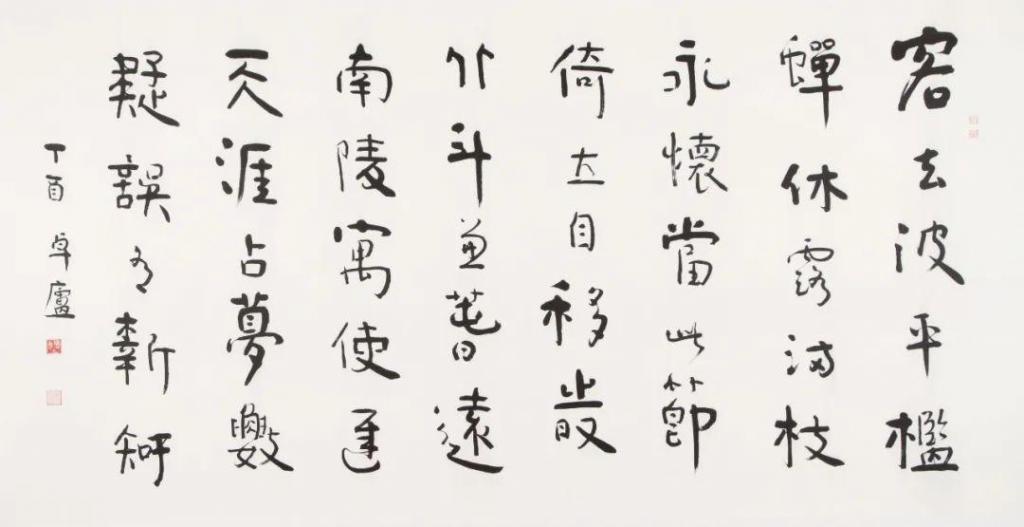 客去波平檻
蟬休露滿枝
永懷當此節
倚立自移時
北斗兼春遠
南陵寓使遲
天涯占夢數
疑誤有新知
丁酉 卓廬